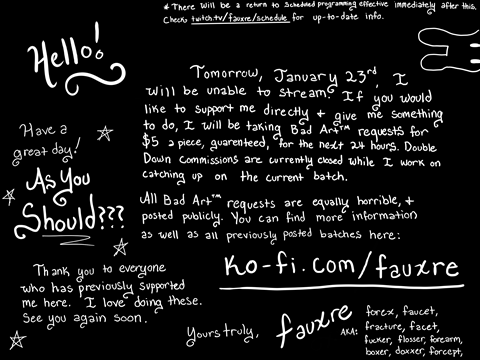 * There will be a return to scheduled programming effective immediately after this.
Check twitch.tv/fauxre/schedule for up-to-date info.
Hello!
Tomorrow, January 23rd, I
will be unable to stream. If you would
like to support me directly & give me something
to do, I will be taking Bad Art™ requests for
$5 a piece, guarenteed, for the next 24 hours. Double
Down Commissions are currently closed while I work on
catching up on the current batch.
Have a
great day!
As You
Should???
All Bad Art™ requests are equally horrible, &
posted publicly. You can find more information
as well as all previously posted batches here:
Ko-fi.com/fauxre
Thank you to everyone
who has previously supported
me here. I love doing these.
See you again soon.
Yours truly,
fauxre
AKA: forex, faucet,
fracture, facet,
fucker, flosser, forearm,
boxer, doxxer, forcept,